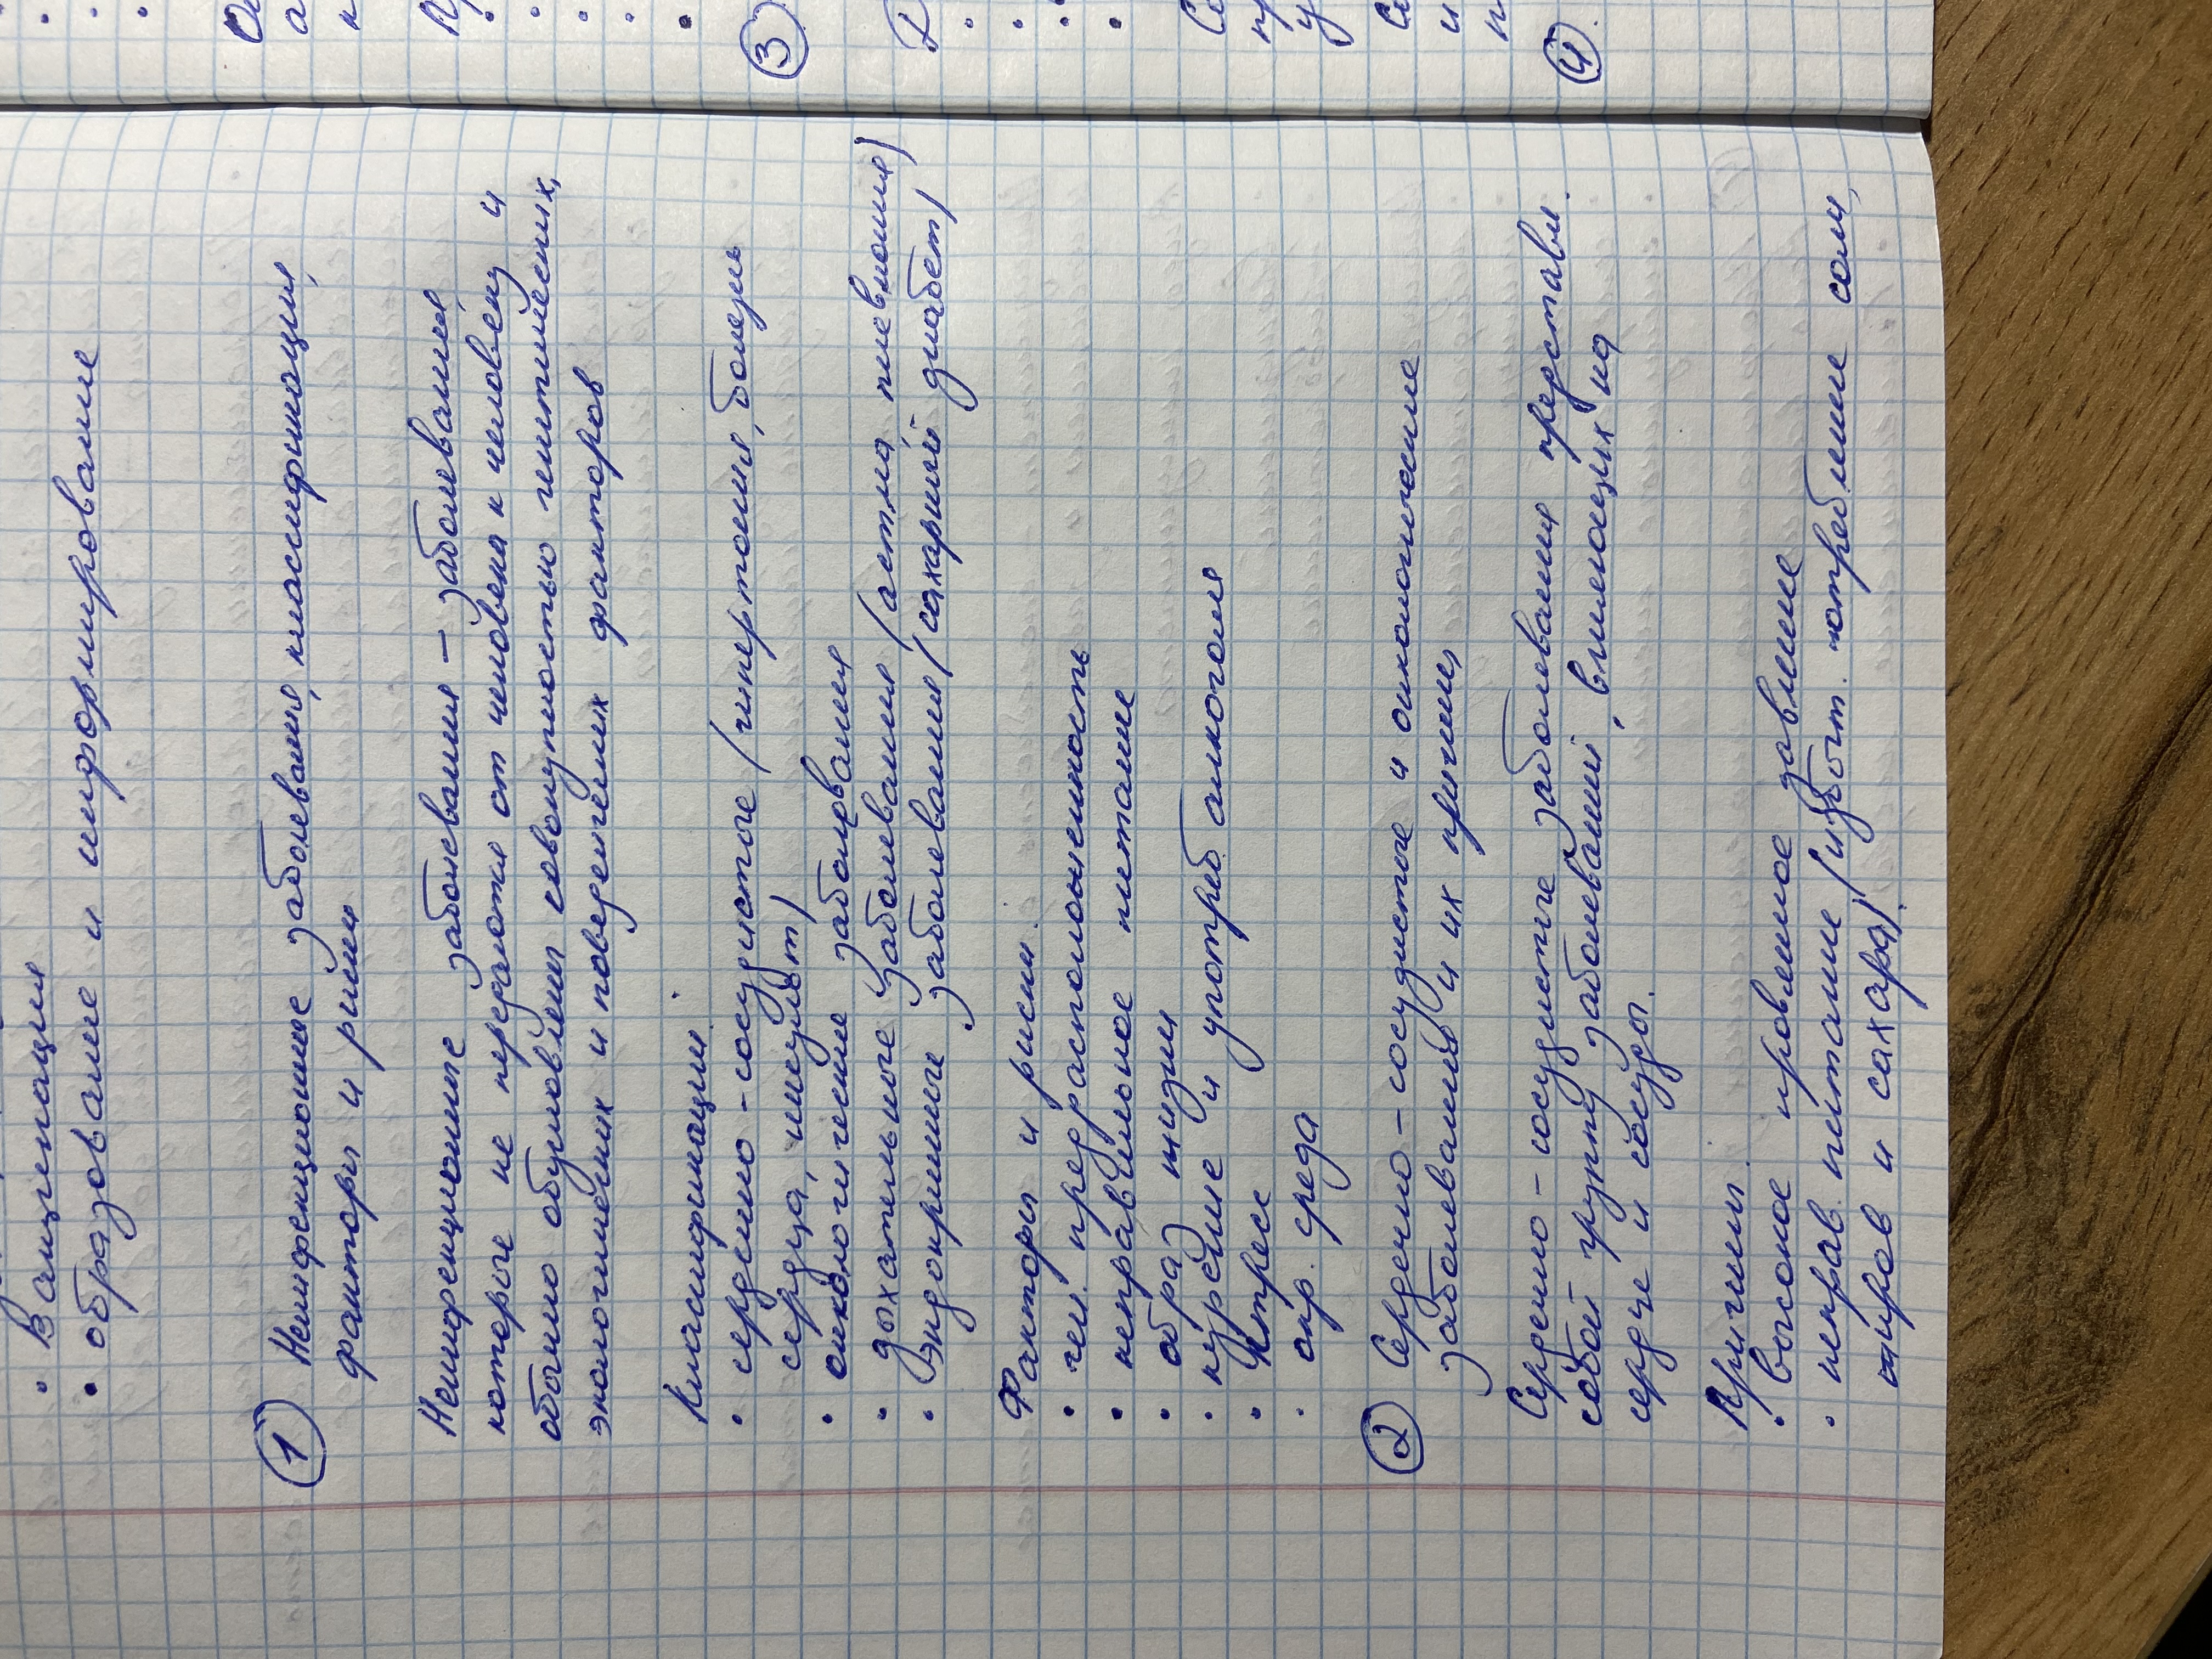 • Вакцинация
• образование и информирование
① Неинфекционные заболевания, классификация,
факторы и риски
Неинфекционные заболевания – заболевания,
которые не передаются от человека к человеку и
обычно обусловлены совокупностью генетических,
экологических и поведенческих факторов
Классификации:
• сердечно-сосудистые (гипертония, болезнь
сердца, инсульт)
• онкологические заболевания
• дыхательные заболевания (астма, пневмония)
• эндокринные заболевания (сахарный диабет)
Факторы и риски:
• ген. предрасположенность
• неправильное питание
• образ жизни
• курение и употреб алкоголя
• стресс
• окр. среда
② Сердечно-сосудистые и онкологические
заболевания и их причины
Сердечно-сосудистые заболевания представл.
собой группу заболеваний, влияющих на
сердце и сосуды.
Причины:
• высокое кровяное давление
• неправ. питание (избыт. потребление соли,
жиров и сахара).
③
④